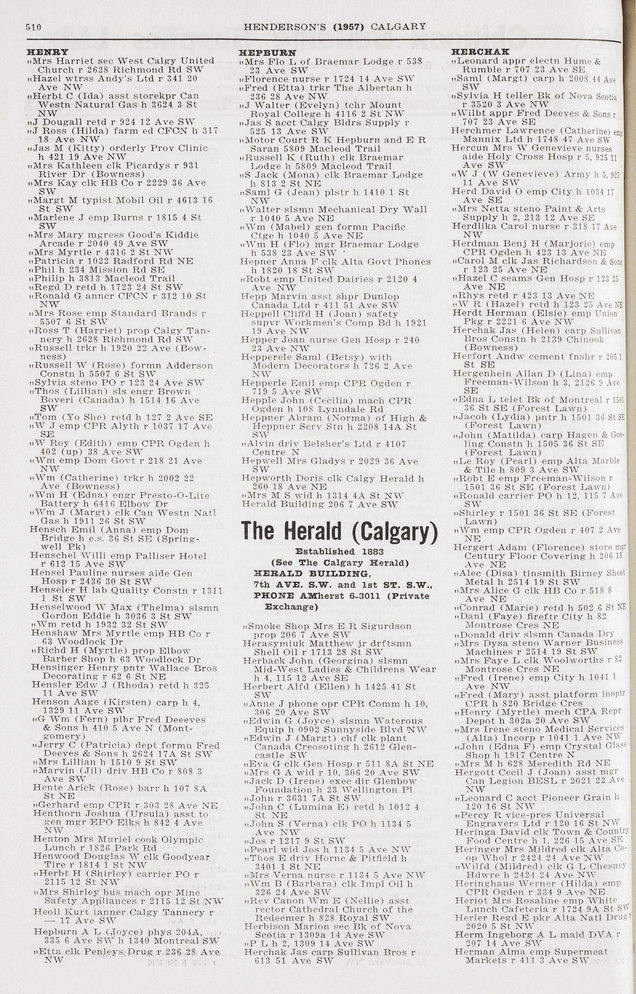 510
HENDERSON'S (1957) CALGARY
HENRY
"Mrs Harriet sec West Calgary United
Church r 2628 Richmond Rd SW
"Hazel wtrss Andy's Ltd r 341 20
Ave NW
"Herbt C (Ida) asst storekpr Can
Westn Natural Gas h 3624 3 St
NW
"J Dougall retd r 924 12 Ave SW
"J Ross (Hilda) farm ed CFCN h 317
18 Ave NW
"Jas M (Kitty) orderly Prov Clinic
h 421 19 Ave NW
"Mrs Kathleen clk Picardys r 931
River Dr (Bowness)
"Mrs Kay clk HB Co r 2229 36 Ave
SW
"Margt M typist Mobil Oil r 4613 16
St SW
"Marlene J emp Burns r 1815 4 St
SW
"Mrs Mary mgress Good's Kiddie
Arcade r 2040 49 Ave SW
"Mrs Myrtle r 4316 2 St NW
"Patricia r 1022 Radford Rd NE
"Phil h 234 Mission Rd SE
"Philip h 3813 Macleod Trail
"Regd D retd r 1723 24 St SW
"Ronald G anncr CFCN r 312 10 St
NW
"Mrs Rose emp Standard Brands r
5507 6 St SW
"Ross T (Harriet) prop Calgary Tan-
nery h 2628 Richmond Rd SW
"Russell trkr h 1920 22 Ave (Bow-
ness)
"Russell W (Rose) formn Adderson
Constn h 5507 6 St SW
"Sylvia steno PO r 123 24 Ave SW
"Thos (Lillian) sls engr Brown
Boveri (Canada) h 1514 16 Ave
SW
"Tom (Yo She) retd h 127 2 Ave SE
"W J emp CPR Alyth r 1037 17 Ave
SE
"W Roy (Edith) emp CPR Ogden h
402 (up) 38 Ave SW
"Wm emp Dom Govt r 218 21 Ave
NW
"Wm (Catherine) trkr h 2002 22
Ave (Bowness)
"Wm H (Edna) engr Prest-O-Lite
Battery h 6416 Elbow Dr
"Wm J (Margt) clk Can Westn Natl
Gas h 1911 26 St SW
Hensch Emil (Anna) emp Dom
Bridge h e.s. 36 St SE (Spring-
well Pk)
Henschel Willi emp Palliser Hotel
r 612 15 Ave SW
Hensel Pauline nurses aide Gen
Hosp r 2436 30 St SW
Henseler H lab Quality Constn r 1311
1 St SW
Henselwood W Max (Thelma) slsmn
Gordon Eddie h 3036 3 St SW
"Wm retd h 1932 32 St SW
Henshaw Mrs Myrtle emp HB Co r
63 Woodlock Dr
"Richd H (Myrtle) prop Elbow
Barber Shop h 63 Woodlock Dr
Hensinger Henry pntr Wallace Bros
Decorating r 62 6 St NE
Hensler Edw J (Rhoda) retd h 325
11 Ave SW
Henson Aage (Kirsten) carp h 4,
1329 11 Ave SW
"G Wm (Fern) plbr Fred Deeves
& Sons h 410 5 Ave N (Mont-
gomery)
"Jerry C (Patricia) dept formn Fred
Deeves & Sons h 2624 17A St SW
"Mrs Lillian h 1510 9 St SW
"Marvin (Jil) driv HB Co r 808 3
Ave SW
Hente Arick (Rose) barr h 107 8A
St NE
"Gerhard emp CPR r 303 28 Ave NE
Henthorn Joshua (Ursula) asst to
gen mgr EPO Elks h 842 4 Ave
NW
Henton Mrs Muriel cook Olympic
Lunch r 1826 Park Rd
Henwood Douglas W clk Goodyear
Tire r 1814 1 St NW
"Herbt H (Shirley) carrier PO r
2115 12 St NW
"Mrs Shirley bus mach opr Mine
Safety Appliances r 2115 12 St NW
Heoll Kurt tanner Calgary Tannery r
— 17 Ave SW
Hepburn A L (Joyce) phys 204A,
335 6 Ave SW h 1340 Montreal SW
"Etta clk Penleys Drug r 236 28 Ave
NW
HEPBURN
"Mrs Flo L of Braemar Lodge r 538
23 Ave SW
"Florence nurse r 1724 14 Ave SW
"Fred (Etta) trkr The Albertan h
236 28 Ave NW
"J Walter (Evelyn) tchr Mount
Royal College h 4116 2 St NW
"Jas S acct Calgary Bldrs Supply r
525 13 Ave SW
"Motor Court R K Hepburn and E R
Saran 5809 Macleod Trail
"Russell K (Ruth) clk Braemar
Lodge h 5809 Macleod Trail
"S Jack (Mona) clk Braemar Lodge
h 813 2 St NE
"Saml G (Jean) plstr h 1410 1 St
NW
"Walter slsmn Mechanical Dry Wall
r 1040 5 Ave NE
"Wm (Mabel) gen formn Pacific
Ctge h 1040 5 Ave NE
"Wm H (Flo) mgr Braemar Lodge
h 538 23 Ave SW
Hepner Anna F clk Alta Govt Phones
h 1820 18 St SW
"Robt emp United Dairies r 2120 4
Ave NW
Hepp Marvin asst shpr Dunlop
Canada Ltd r 411 51 Ave SW
Heppell Cliffd H (Joan) safety
supvr Workmen's Comp Bd h 1921
19 Ave NW
Hepper Joan nurse Gen Hosp r 240
23 Ave NW
Hepperele Saml (Betsy) with
Modern Decorators h 726 2 Ave
NW
Hepperle Emil emp CPR Ogden r
719 5 Ave SW
Hepple John (Cecilia) mach CPR
Ogden h 108 Lynndale Rd
Heppner Abram (Norma) of High &
Heppner Serv Stn h 2208 14A St
SW
"Alvin driv Belsher's Ltd r 4107
Centre N
Hepwell Mrs Gladys r 2029 36 Ave
SW
Hepworth Doris clk Calgy Herald h
260 18 Ave NE
"Mrs M S wid h 1314 4A St NW
Herald Building 206 7 Ave SW
The Herald (Calgary)
Established 1883
(See The Calgary Herald)
HERALD BUILDING,
7th AVE. S.W. and 1st ST. S.W.,
PHONE AMherst 6-3011 (Private
Exchange)
"Smoke Shop Mrs E R Sigurdson
prop 206 7 Ave SW
Herasymiuk Matthew jr drftsmn
Shell Oil r 1713 28 St SW
Herback John (Georgina) slsmn
Mid-West Ladies & Childrens Wear
h 4, 115 12 Ave SE
Herbert Alfd (Ellen) h 1425 41 St
SW
"Anne J phone opr CPR Comm h 10,
306 20 Ave SW
"Edwin G (Joyce) slsmn Waterous
Equip h 0902 Sunnyside Blvd NW
"Edwin J (Margt) chf clk plant
Canada Creosoting h 2612 Glen-
castle SW
"Eva G clk Gen Hosp r 511 8A St NE
"Mrs G A wid r 10, 306 20 Ave SW
"Jack D (Irene) exec dir Glenbow
Foundation h 23 Wellington Pl
"John r 3631 7A St SW
"John C (Lumina E) retd h 1012 4
St NE
"John S (Verna) clk PO h 1134 5
Ave NW
"Jos r 1217 9 St SW
"Pearl wid Jos h 1134 5 Ave NW
"Thos E driv Horne & Pitfield h
3401 1 St NE
"Mrs Verna nurse r 1134 5 Ave NW
"Wm B (Barbara) clk Impl Oil h
326 24 Ave SW
"Rev Canon Wm E (Nellie) asst
rector Cathedral Church of the
Redeemer h 828 Royal SW
Herbison Marion sec Bk of Nova
Scotia r 1309a 14 Ave SW
"P L h 2, 1309 14 Ave SW
Herchak Jas carp Sullivan Bros r
613 51 Ave SW
HERCHAK
"Leonard appr electn Hume &
Rumble r 707 23 Ave SE
"Saml (Margt) carp h 2008 44 Ave
SW
"Sylvia H teller Bk of Nova Scotia
r 3520 3 Ave NW
"Wilbt appr Fred Deeves & Sons r
707 23 Ave SE
Herchmer Lawrence (Catherine) emp
Mannix Ltd h 1748 47 Ave SW
Hercun M W Genevieve nurses
aide Holy Cross Hosp r 5, 925 11
Ave SW
"W J (W Genevieve) Army h 5, 925
11 Ave SW
Herd David O emp City h 1034 17
Ave SE
"Mrs Netta steno Paint & Arts
Supply h 2, 213 12 Ave SE
Herdlika Carol nurse r 318 17 Ave
NW
Herdman Benj H (Marjorie) emp
CPR Ogden h 423 13 Ave NE
"Carol M clk Jas Richardson & Sons
r 123 25 Ave NE
"Hazel C seams Gen Hosp r 123 25
Ave NE
"Rhys retd r 423 13 Ave NE
"W R (Hazel) retd h 123 25 Ave NE
Herdt Herman (Elsie) emp Union
Pkg r 2221 6 Ave NW
Herehak Jas (Helen) carp Sullivan
Bros Constn h 2139 Chinook
(Bowness)
Herfort Andw cement fnshr r 205 1
St SE
Hergenhein Allan D (Lina) emp
Freeman-Wilson h 3, 2126 9 Ave
SE
"Edna L telet Bk of Montreal r 1501
36 St SE (Forest Lawn)
"Jacob (Lydia) pntr h 1501 36 St SE
(Forest Lawn)
"John (Matilda) carp Hagen & Goe-
ling Constn h 1505 36 St SE
(Forest Lawn)
"Le Roy (Pearl) emp Alta Marble
& Tile h 809 3 Ave SW
"Robt E emp Freeman-Wilson r
1501 36 St SE (Forest Lawn)
"Ronald carrier PO h 12, 115 7 Ave
SW
"Shirley r 1501 36 St SE (Forest
Lawn)
"Wm emp CPR Ogden r 407 2 Ave
NE
Hergert Adam (Florence) store mgr
Century Floor Covering h 206 18
Ave NE
"Alec (Disa) tinsmith Birney Sheet
Metal h 2514 19 St SW
"Mrs Alice G clk HB Co r 518 8
Ave NE
"Conrad (Marie) retd h 502 6 St NE
"Danl (Faye) fireftr City h 82
Montrose Cres NE
"Donald driv slsmn Canada Dry
"Mrs Dysa steno Warner Business
Machines r 2514 19 St SW
"Mrs Faye L clk Woolworths r 82
Montrose Cres NE
"Fred (Irene) emp City h 1041 1
Ave NW
"Fred (Mary) asst platform insptr
CPR h 820 Bridge Cres
"Henry (Myrtle) mech CPA Repr
Depot h 302a 20 Ave SW
"Mrs Irene steno Medical Services
(Alta) Incorp r 1041 1 Ave NW
"John (Edna F) emp Crystal Glass
Shop h 1917 Centre N
"Mrs M h 628 Meredith Rd NE
Hergott Cecil J (Joan) asst mgr
Can Legion BESL r 2021 22 Ave
NW
"Leonard C acct Pioneer Grain h
120 16 St NW
"Percy R vice-pres Universal
Engravers Ltd r 120 16 St NW
Heringa David clk Town & Country
Food Centre h 1, 226 15 Ave SE
Heringer Mrs Mildred clk Alta Co-
op Whol r 2424 24 Ave NW
"Wilfd (Mildred) clk G L Chesney
Hdwre h 2424 24 Ave NW
Heringhaus Werner (Hilda) emp
CPR Ogden r 334 9 Ave NE
Heriot Mrs Rosaline emp White
Lunch Cafeteria r 1724 9A St SW
Herier Regd E pkr Alta Natl Drug
2020 5 St NW
Herm Ingeborg A L maid DVA r
207 14 Ave SW
Herman Alma emp Supermeat
Markets r 411 3 Ave SW